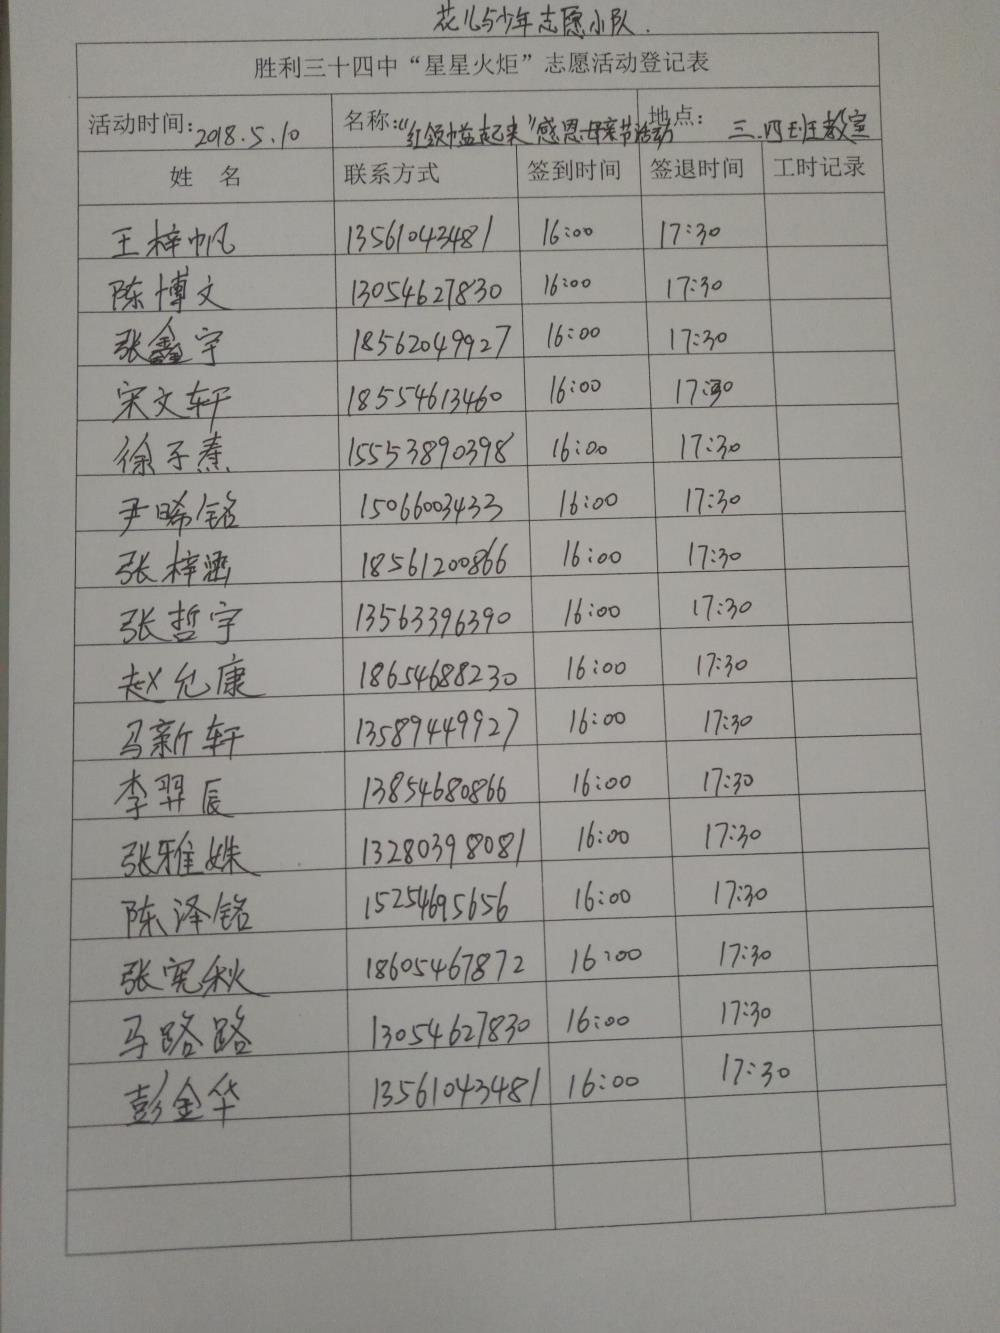 花儿与少年志愿小队.
胜利三十四中“星星火炬”志愿活动登记表
活动时间: 2018.5.10 名称:“红领巾益起来”感恩母亲节活动 地点: 三.四班教室
姓 名 联系方式 签到时间 签退时间 工时记录
王梓帆 13561043481 16:00 17:30
陈博文 13054627830 16:00 17:30
张鑫宇 18562049927 16:00 17:30
宋文轩 18554613460 16:00 17:30
徐子熹 15553890398 16:00 17:30
尹晞铭 15066003433 16:00 17:30
张梓涵 18561200866 16:00 17:30
张哲宇 13563396390 16:00 17:30
赵允康 18654688230 16:00 17:30
马新轩 13589449927 16:00 17:30
李羿辰 13854680866 16:00 17:30
张雅姝 13280398081 16:00 17:30
陈泽铭 15254695656 16:00 17:30
张宪秋 18605467872 16:00 17:30
马路路 13054627830 16:00 17:30
彭金华 13561043481 16:00 17:30